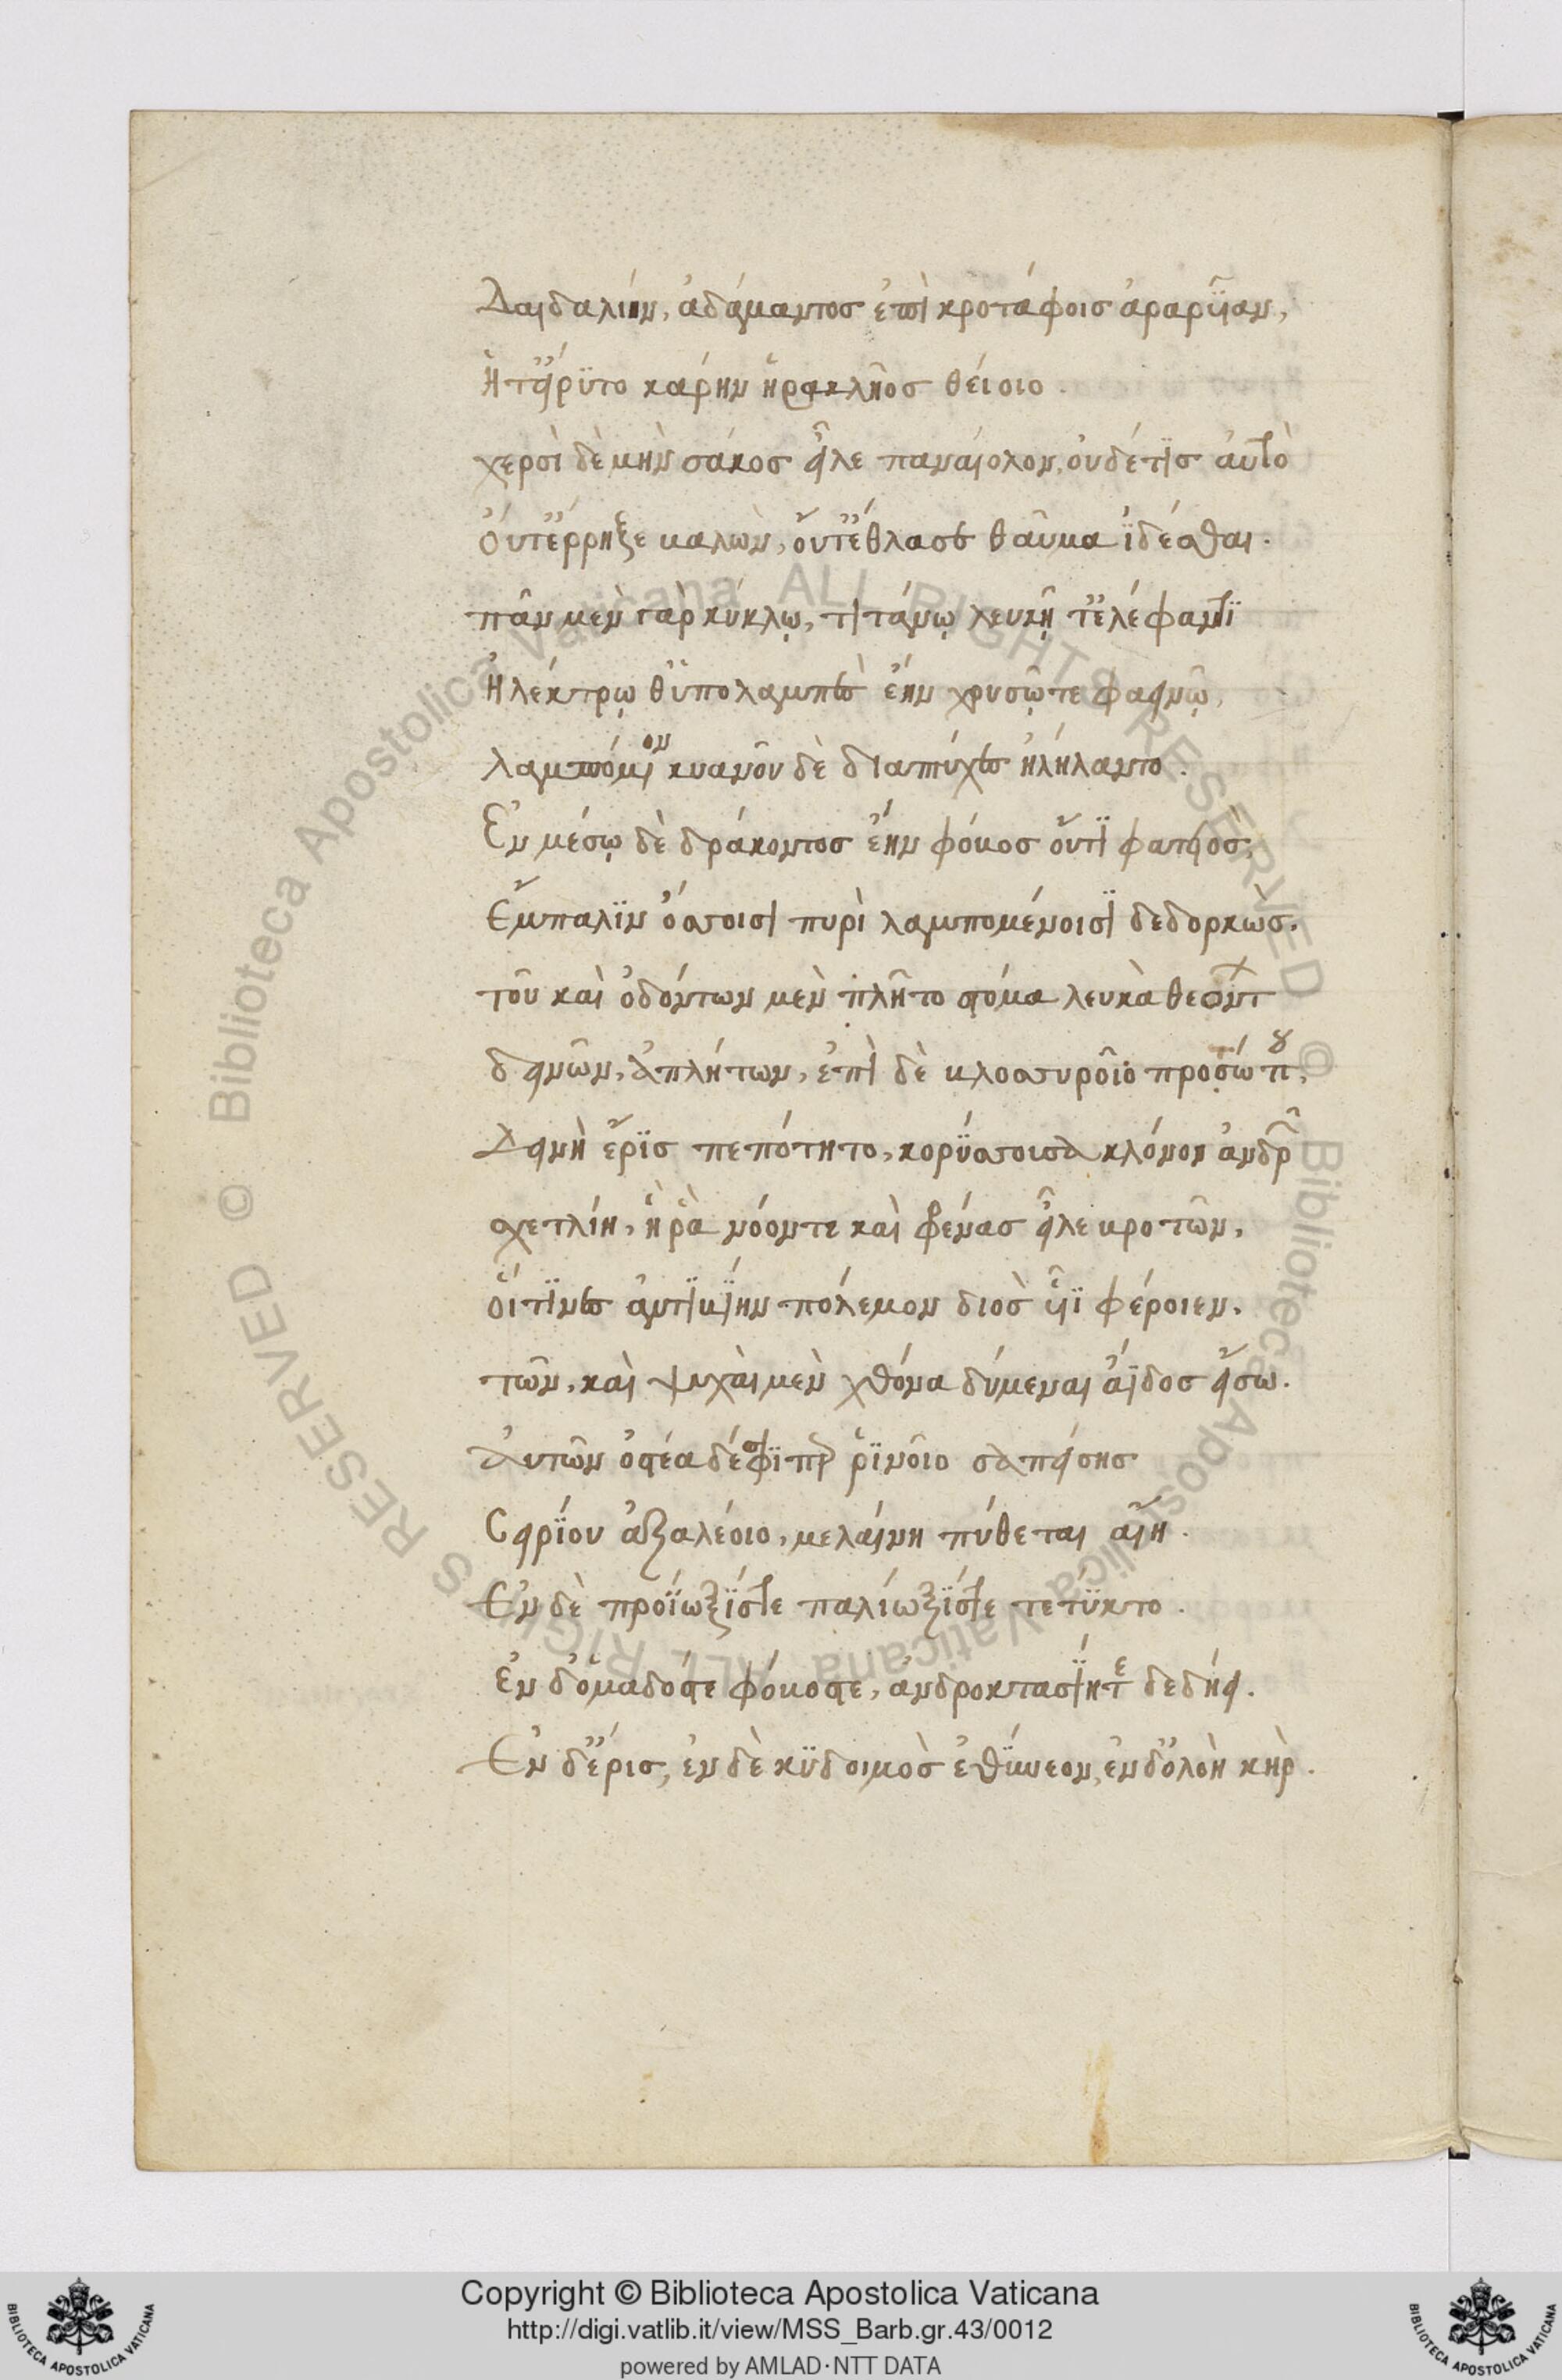 Δαιδαλίην, ἀδάμαντος ἐπὶ κροτάφοις ἀραρυῖαν,
Ἥτ' εἴρϋτο κάρην ἡρακλῆος θείοιο.
χερσὶ δὲ μὴν σάκος εἷλε παναίολον, οὐδέ τϊς ἀυτὸ
Ὀύτ' ἔρρηξε καλὼν, οὔτ' ἔθλασε θαῦμα ϊδέσθαι.
πᾶν μεν γὰρ κύκλῳ, τιτάνῳ λευκῇ τ' ἐλέφαντϊ
Ἠλέκτρῳ θ' ὑπολαμπὲς ἔην χρυσῷ τε φαεινῷ,
λαμπόμενον κυανοῦ δὲ διαπτύχες ἠλήλαντο.
Ἐν μέσῳ δὲ δράκοντος ἔην φόβος οὔτϊ φατειὸς,
Ἔμπαλϊν ὄσσοισι πυρὶ λαμπομένοισϊ δεδορκὼς.
τοῦ καὶ ὀδόντων μὲν πλῆτο στόμα λευκὰ θεόντ
δεινῶν, ἀπλήτων, ἐπὶ δὲ βλοσυροῖο προσώπου,
Δεινὴ ἔρϊς πεπότητο, κορύσσουσα κλόνον ἀνδρῶν
σχετλίη, ἥ ῥὰ νόον τε καὶ φρένας εἷλε βροτῶν,
οἵ τϊνες ἀντϊβϊην πόλεμον διὸς υἷϊ φέροιεν.
τῶν, καὶ ψυχὰι μὲν χθόνα δύμεναι ἄϊδος εἴσω.
Ἀυτῶν ὀστέα δέ σφϊ περὶ ῥϊνοῖο σαπείσης
Σειρΐου ἀζαλέοιο, μελαίνη πύθεται αἴη.
Ἐν δὲ προΐωξΐς τε παλίωξΐς τε τετύκτο.
ἐν δ' ὅμαδός τε φόβος τε, ἀνδροκτασΐη τε δεδήει.
Ἐν δ' ἔρις, ἐν δὲ κϋδοιμὸς ἐθΰνεον, ἐν δ' ὀλοὴ κὴρ.
Copyright © Biblioteca Apostolica Vaticana
http://digi.vatlib.it/view/MSS_Barb.gr.43/0012
powered by AMLAD·NTT DATA
BIBLIOTECA APOSTOLICA VATICANA
BIBLIOTECA APOSTOLICA VATICANA
© Biblioteca Apostolica Vaticana ALL RIGHTS RESERVED
© Biblioteca Apostolica Vaticana ALL RIGHTS RESERVED